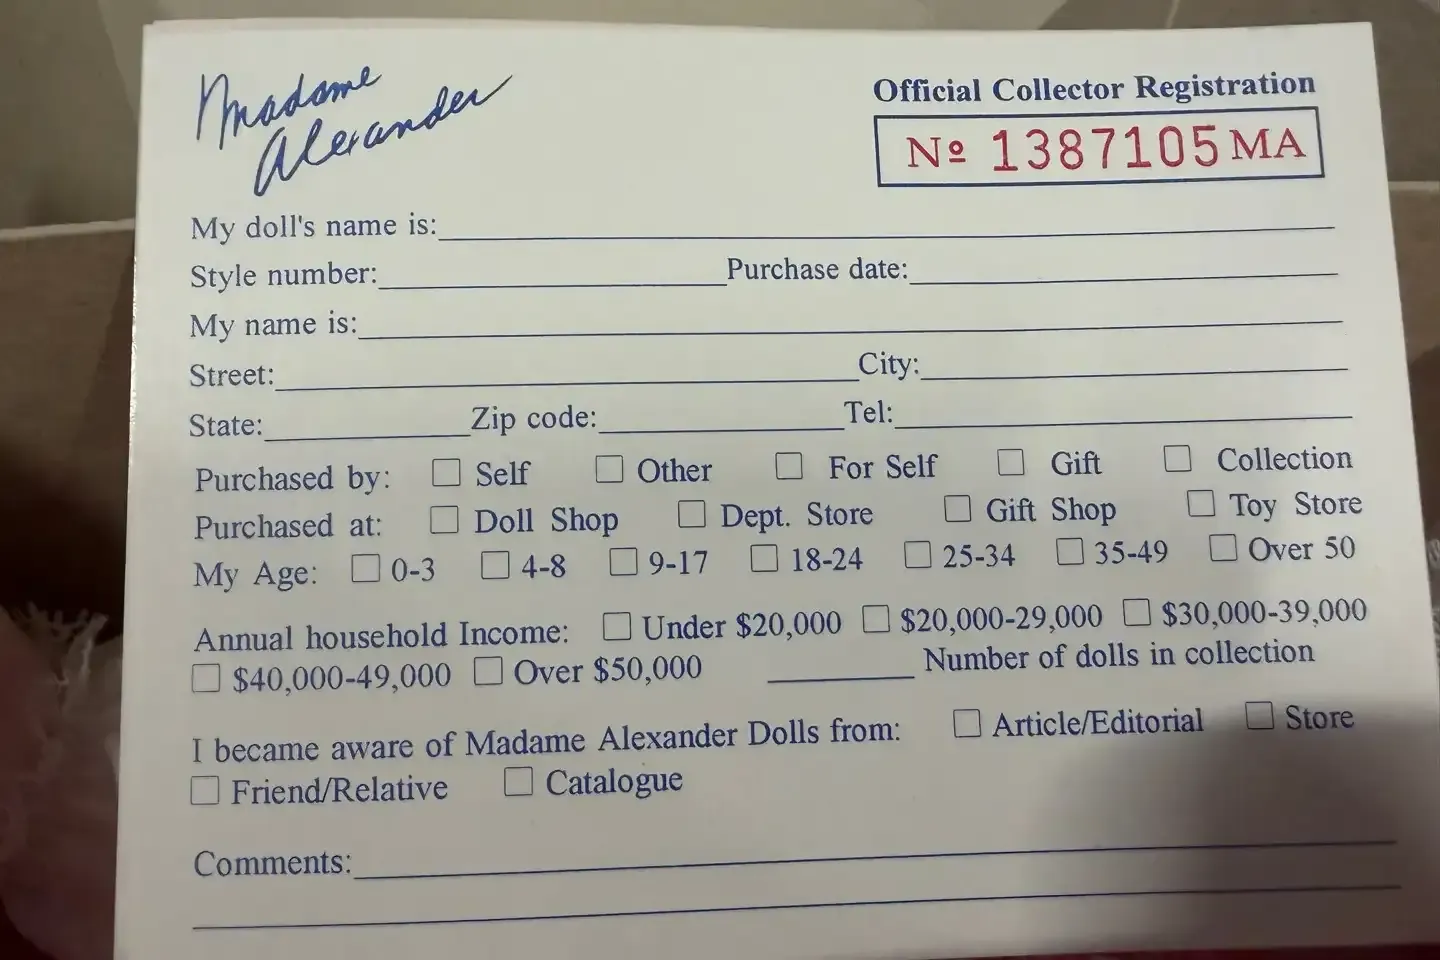 Madame
Alexander
Official Collector Registration
Nº 1387105 MA
My doll's name is:
Style number: Purchase date:
My name is:
Street: City:
State: Zip code: Tel:
Purchased by: Self Other For Self Gift Collection
Purchased at: Doll Shop Dept. Store Gift Shop Toy Store
My Age: 0-3 4-8 9-17 18-24 25-34 35-49 Over 50
Annual household Income: Under $20,000 $20,000-29,000 $30,000-39,000
$40,000-49,000 Over $50,000 Number of dolls in collection
I became aware of Madame Alexander Dolls from: Article/Editorial Store
Friend/Relative Catalogue
Comments: